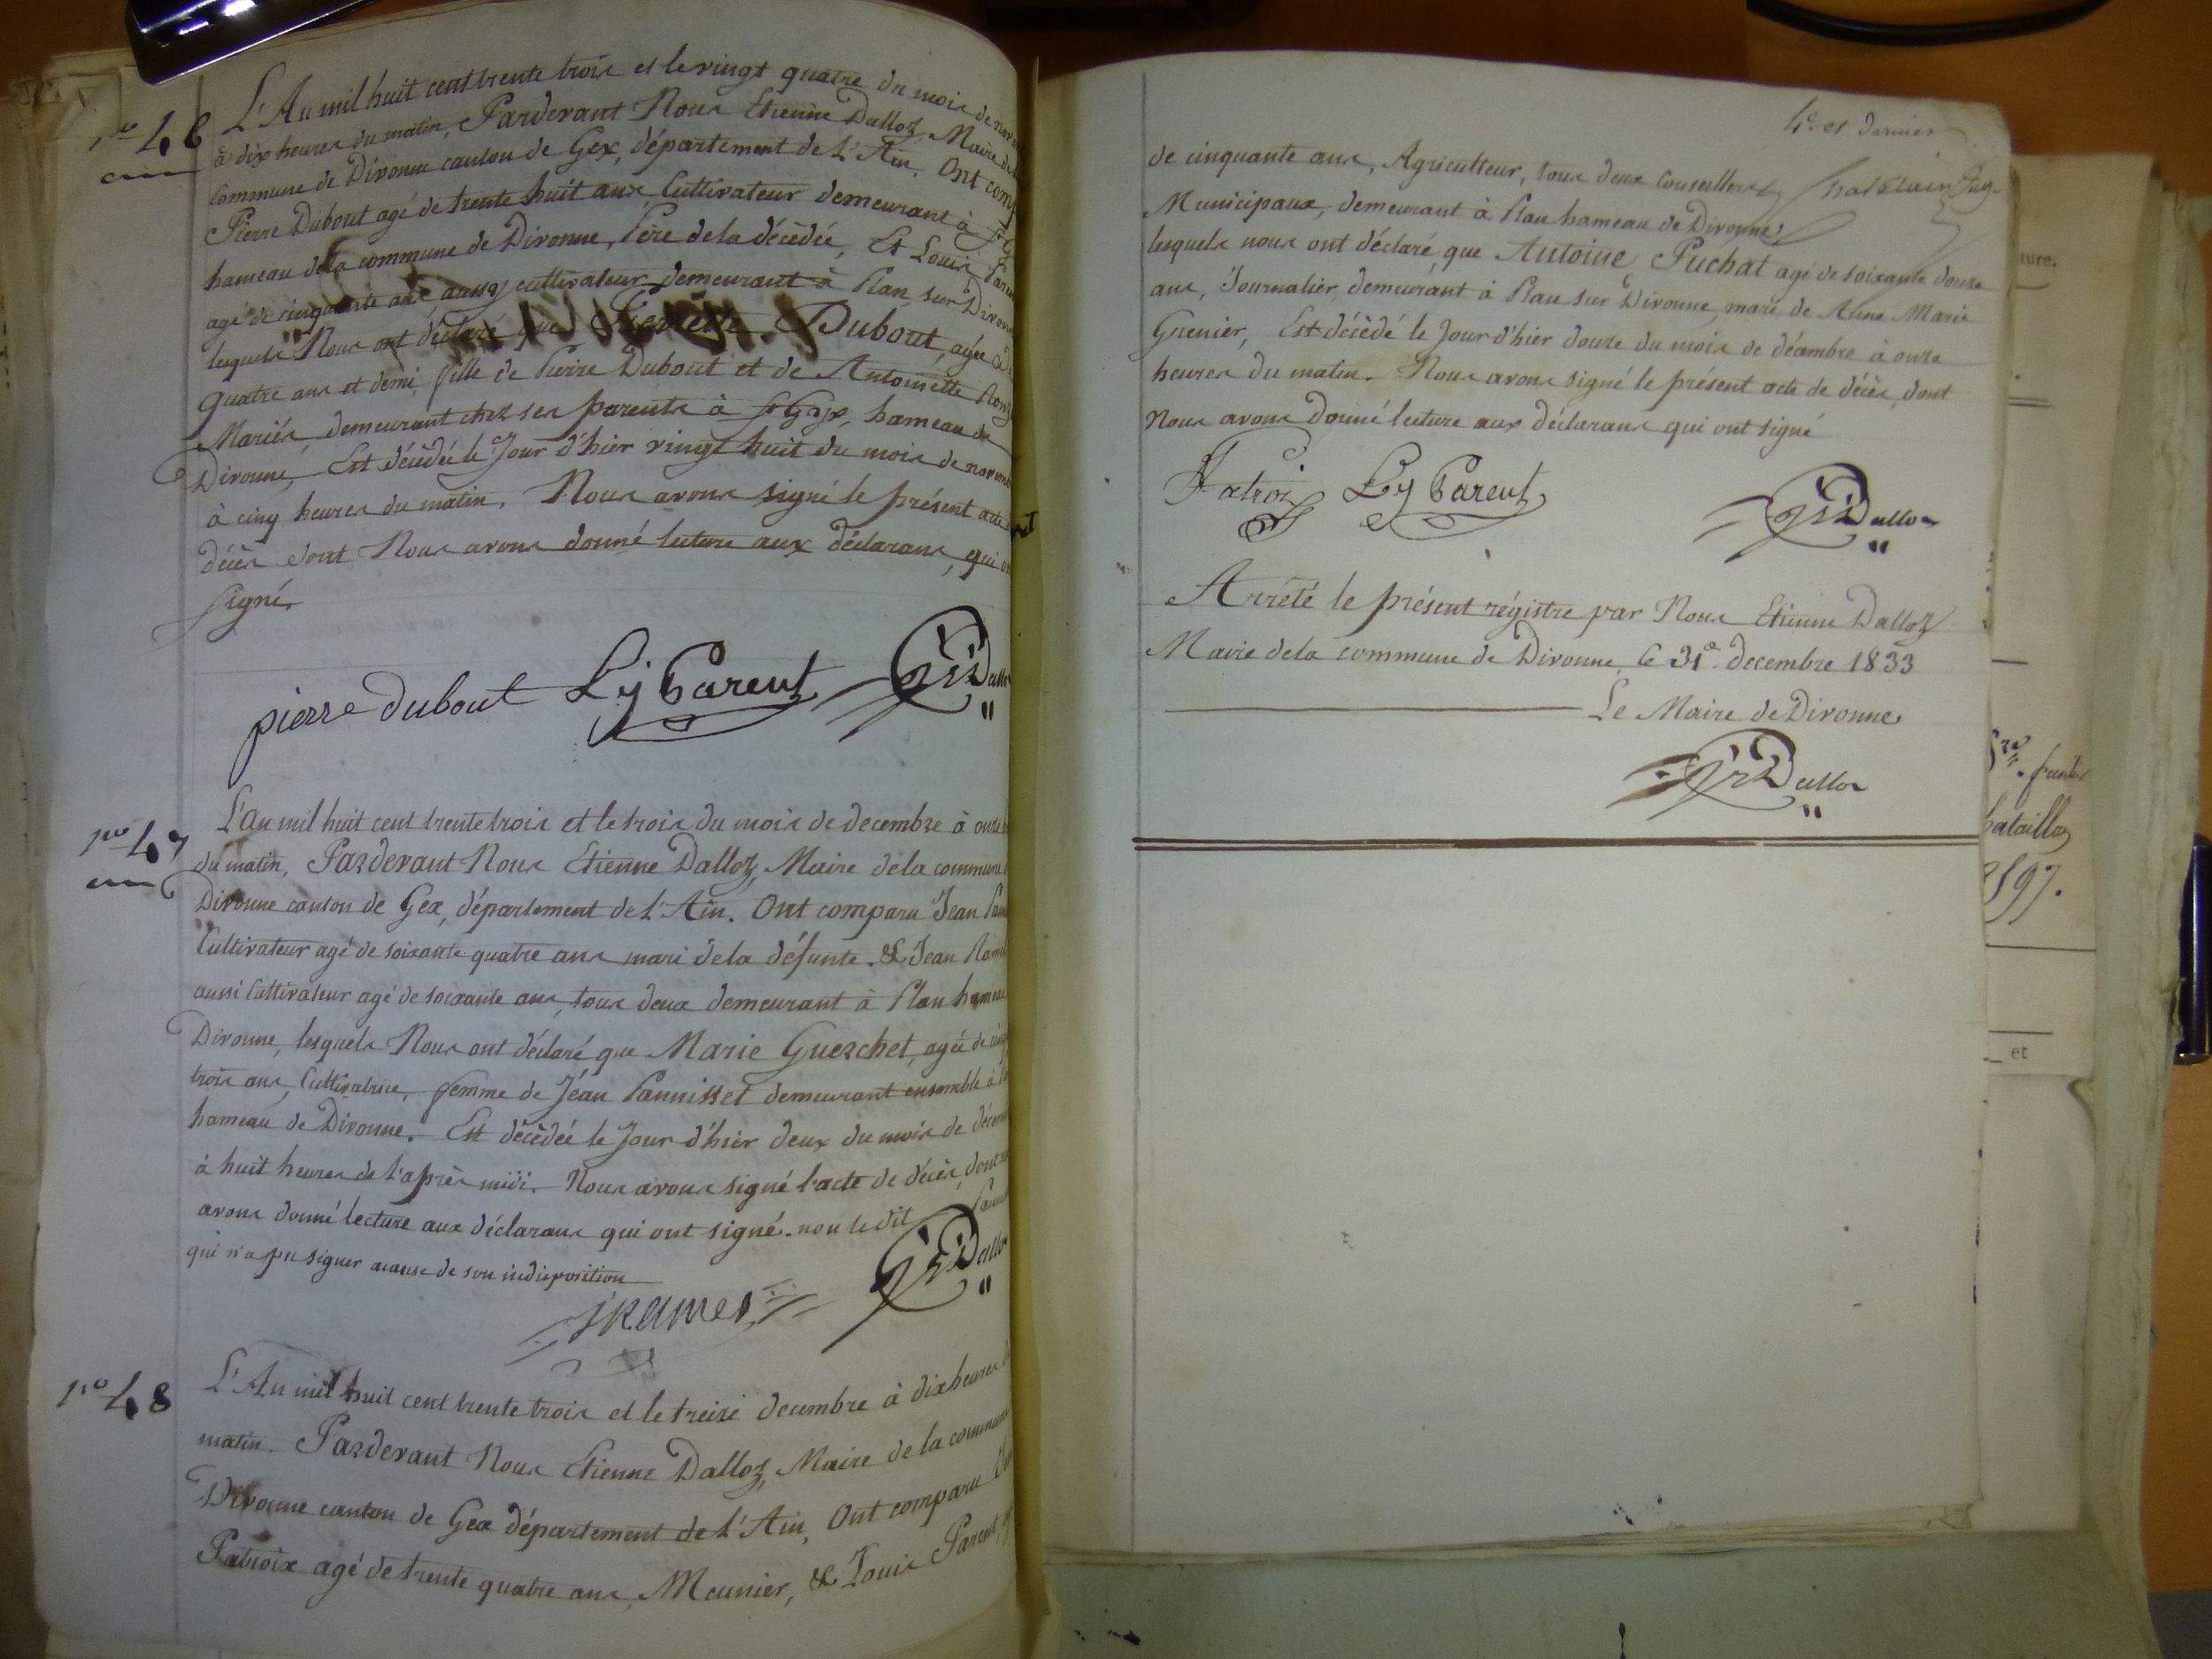 no 46
L'An mil huit cent trente trois et le vingt quatre du mois de
à dix heures du matin, Pardevant Nous Etienne Dalloz, Maire de
Commune de Divonne canton de Gex, département de L'Ain. Ont
Pierre Dubout agé de trente huit ans Cultivateur demeurant à
hameau dela commune de Divonne, Père dela décèdée, Et Louis
agé de cinquante ans, aussy cultivateur demeurant à Plan, sur
lesquels Nous ont déclaré que Dubout, agée
quatre ans et demi, fille de Pierre Dubout et de Antoinette
Mariés, demeurant chez ses parents à St Gix, hameau de
Divonne, Est décèdée le Jour d'hier vingt huit du mois de
à cinq heures du matin. Nous avons signé le présent acte
décès dont Nous avons donné lecture aux déclarans, qui
signé.
pierre dubout Ls Parent Dalloz
no 47
L'an mil huit cent trente trois et le trois du mois de decembre à onze
du matin, Pardevant Nous Etienne Dalloz, Maire dela commune
Divonne canton de Gex, département de L'Ain. Ont comparu Jean
Cultivateur agé de soixante quatre ans mari dela défunte. & Jean
aussi Cultivateur agé de soixante ans, tous deux demeurant à Plan hameau
Divonne, lesquels Nous ont déclaré que Marie Guerchet, agée de
trois ans, Cultivatrice, femme de Jean Pannisset demeurant ensemble à
hameau de Divonne. Est décèdée le Jour d'hier deux du mois de
à huit heures de l'après midi. Nous avons signé l'acte de décès, dont
avons donné lecture aux déclarans qui ont signé. non le dit
qui n'a pu signer acause de son indisposition
Dalloz
no 48
L'An mil huit cent trente trois et le treize decembre à dix heures
matin. Pardevant Nous Etienne Dalloz, Maire de la commune
Divonne canton de Gex département de L'Ain, Ont comparu
Patroix agé de trente quatre ans, Meunier, & Louis Parent,
4e. et dernier
de cinquante ans, Agriculteur, tous deux Conseillers
Municipaux, demeurant à Plan hameau de Divonne,
lesquels nous ont déclaré, que Antoine Puchat agé de soixante douze
ans, Journalier, demeurant à Plan sur Divonne, mari de Anne Marie
Grenier, Est décèdé le Jour d'hier douze du mois de décembre à onze
heures du matin. Nous avons signé le présent acte de décès, dont
Nous avons donné lecture aux déclarans qui ont signé
Patroix Ls Parent Dalloz
Arrêté le présent régistre par Nous Etienne Dalloz
Maire dela commune de Divonne, le 31e. decembre 1833
Le Maire de Divonne
Dalloz
et